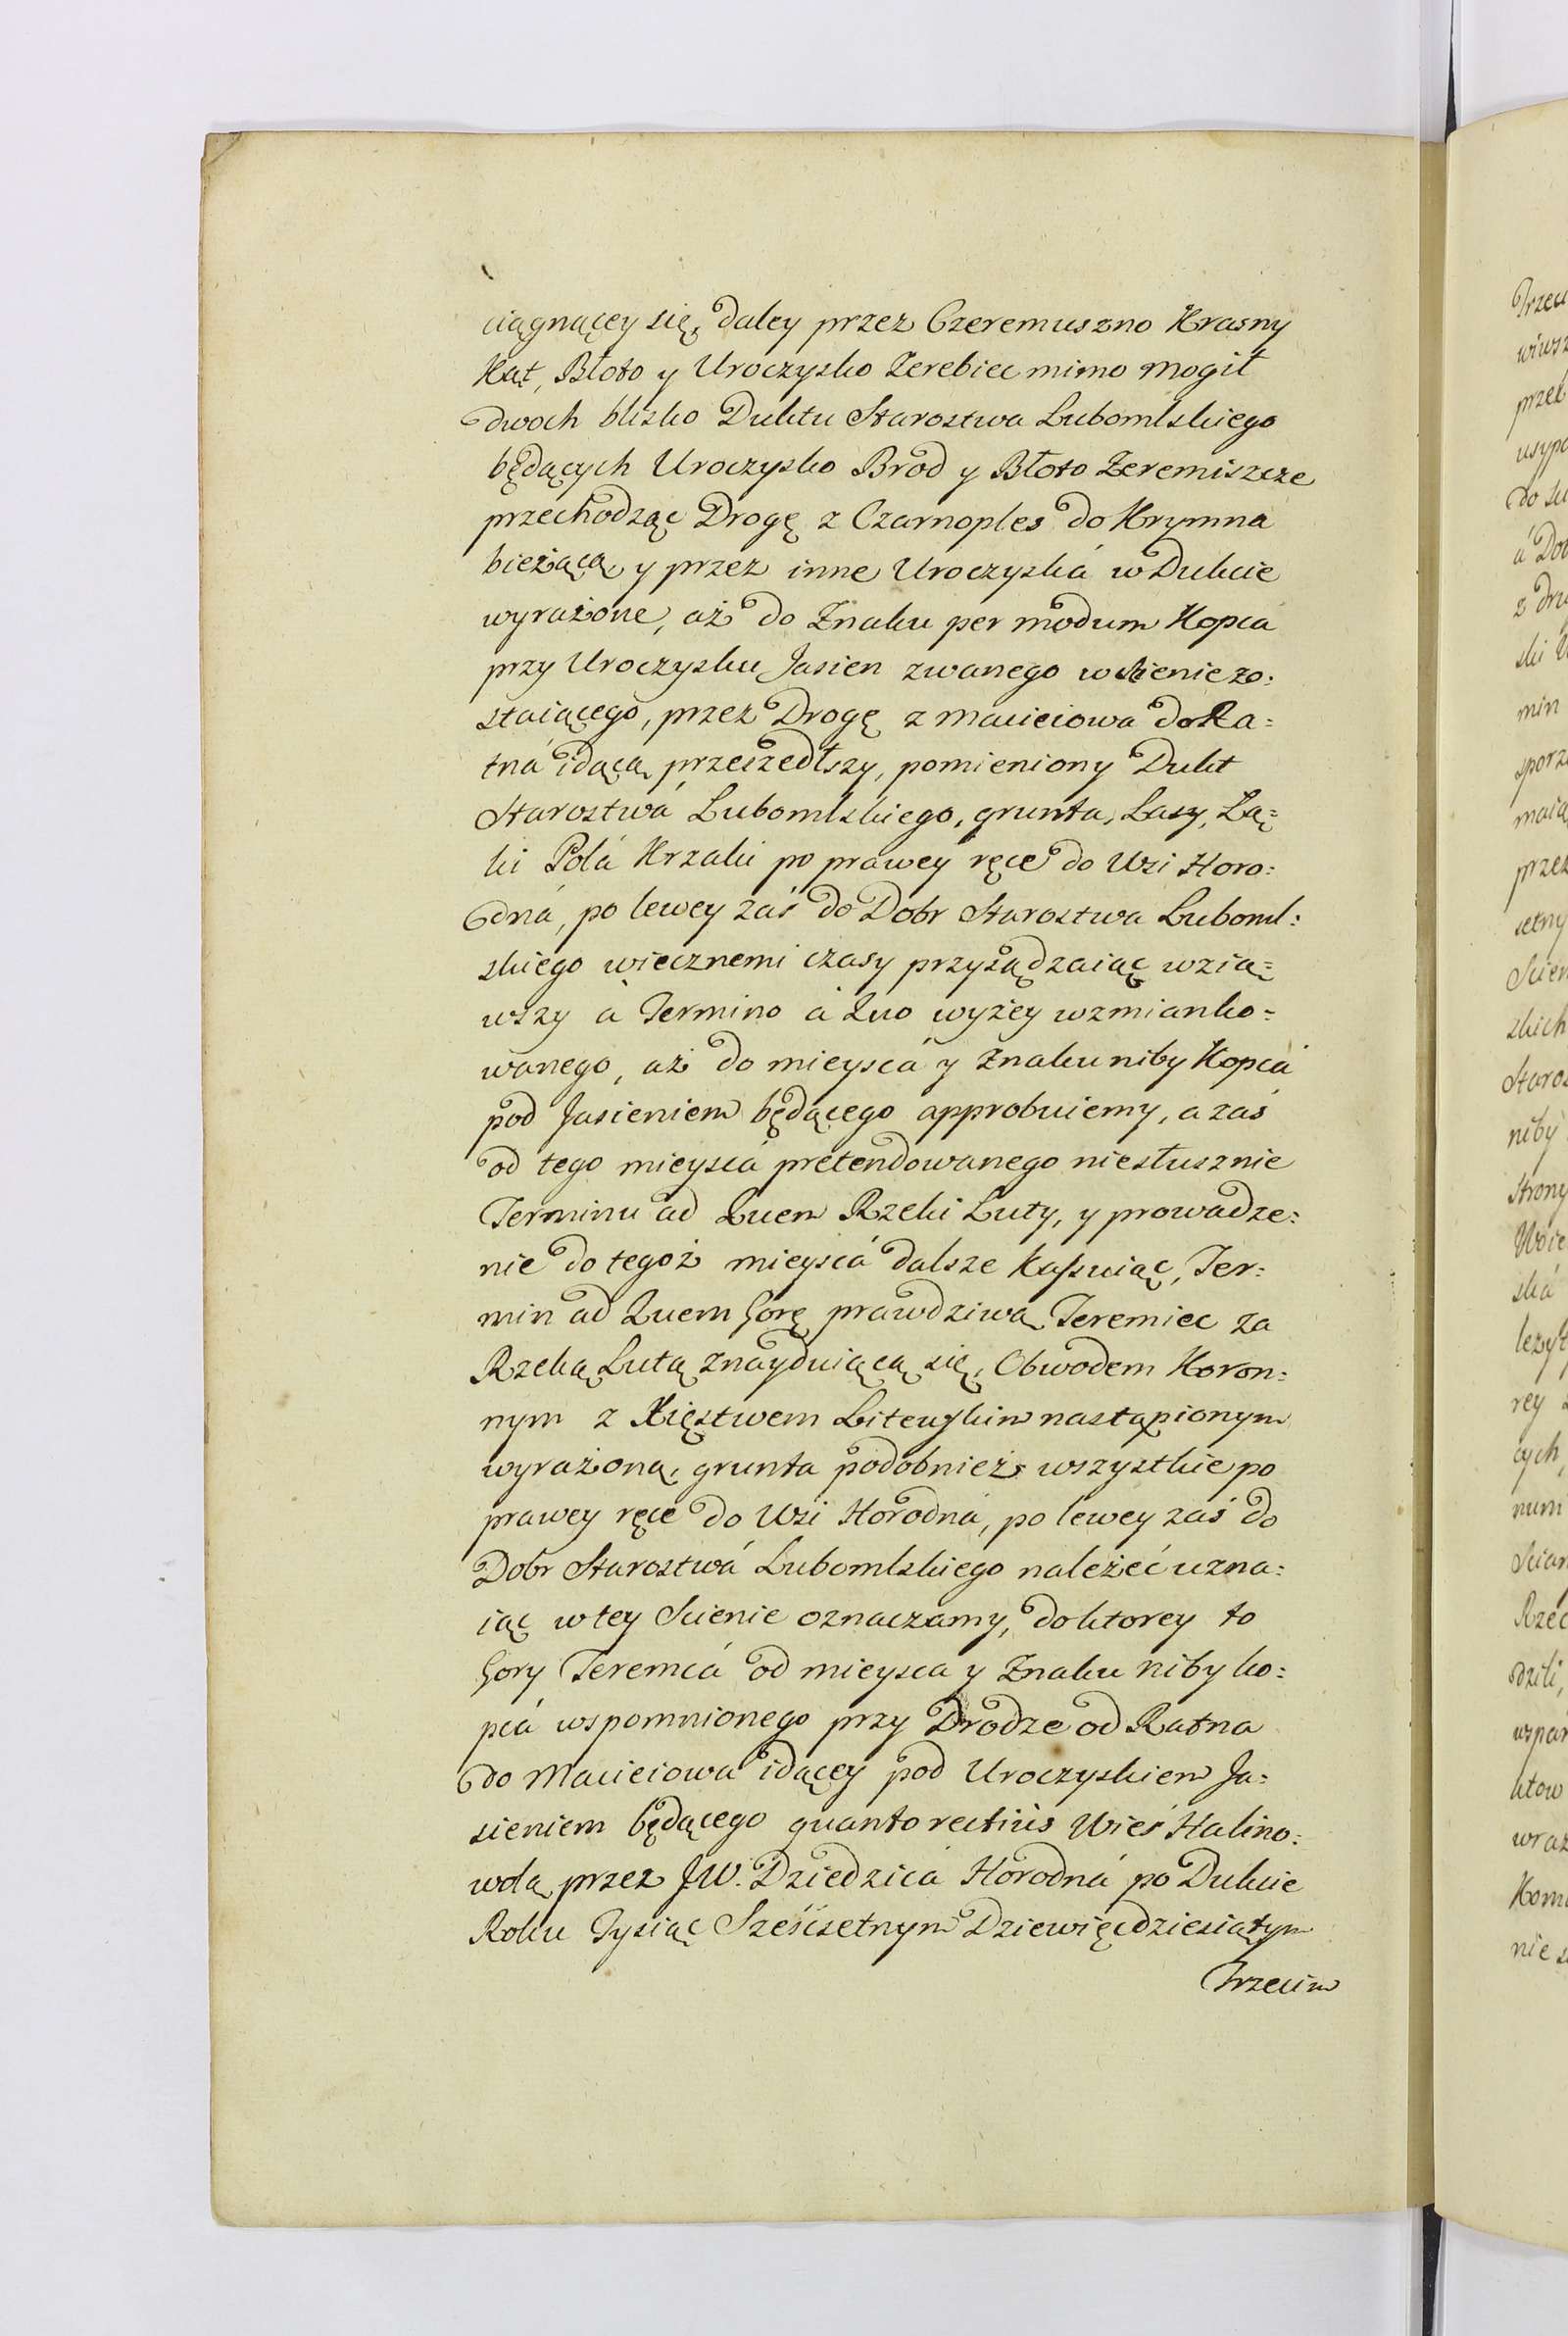 ciągnącey się, daley przez Czeremuszno Krasny
Kąt, Błoto y Uroczysko Zerebiec mimo mogił
dwoch blisko Duktu Starostwa Lubomlskiego
będących Uroczysko Brod y Błoto Zeremiszcze
przechodząc Drogę z Czarnoples do Krymna
bieżącą, y przez inne Uroczyská w Dukcie
wyrażone, aż do Znaku per modum Kopca
przy Uroczysku Jasien zwanego w Scienie zo:
staiącego, przez Drogę z Maciejowa do Ra=
tná idącą przeszedłszy, pomieniony Dukt
Starostwá Lubomlskiego, grunta, Lasy, Łą=
ki Polá Krzaki po prawey ręce do Wsi Horo:
dná, po lewey zaś do Dobr Starostwa Luboml:
skiego wiecznemi czasy przysądzaiąc wzią=
wszy à Termino à Quo wyżey wzmianko=
wanego, aż do mieyscá y Znaku niby Kopcá
pod Jasieniem będącego approbuiemy, a zaś
od tego mieyscá pretendowanego niesłusznie
Terminu ad Quem Rzeki Luty, y prowadze:
nie do tegoż mieyscá dalsze kassuiąc, Ter:
min ad Quem Gorę prawdziwą Teremiec za
Rzeką Lutą znayduiącą się, Obwodem Koron:
nym z Xięstwem Litewskim nastąpionym
wyrażoną, grunta podobnież wszystkie po
prawey ręce do Wsi Horodná, po lewey zaś do
Dobr Starostwá Lubomlskiego należeć uzna:
iąc w tey Scienie oznaczamy, do ktorey to
Gory Teremcá od mieysca y Znaku niby ko:
pcá wspomnionego przy Drodze od Ratna
do Maciejowa idącey pod Uroczyskiem Ja:
sieniem będącego quanto rectius Wieś Halino:
wolą przez JW. Dziedzicá Horodná po Dukcie
Roku Tysiąc Sześćsetnym Dziewięćdziesiątym
Trzecim